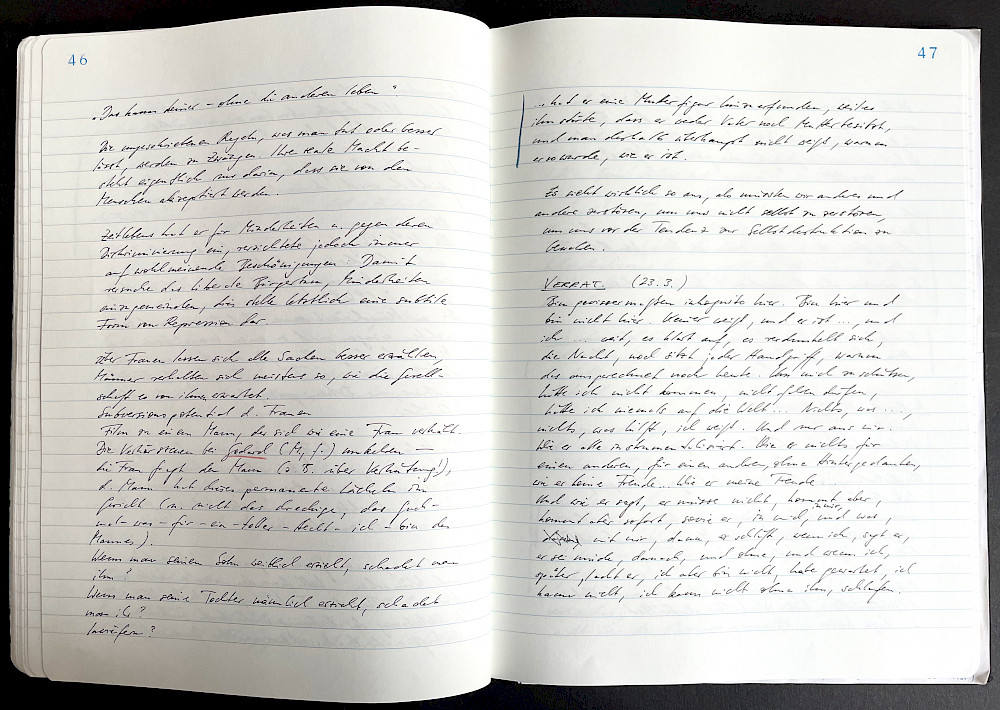 46
„Das kann keiner – ohne die anderen leben“.
Die ungeschriebenen Regeln, was man tut oder besser
lässt, werden zu Zwängen. Ihre reale Macht be-
steht eigentlich nur darin, dass sie von den
Menschen akzeptiert werden.
Zeitlebens trat er für Minderheiten u. gegen deren
Diskriminierung ein, verzichtete jedoch immer
auf wohlmeinende Beschönigungen. Damit
versuche das liberale Bürgertum, Minderheiten
einzugemeinden, dies stelle letztlich eine subtile
Form von Repression dar.
Über Frauen lassen sich alle Sachen besser erzählen,
Männer verhalten sich meistens so, wie die Gesell-
schaft es von ihnen erwartet.
Subversionspotential d. Frauen
Film zu einem Mann, der sich wie eine Frau verhält.
Die Verhörszenen bei Godard (M, f.) umkehren —
die Frau fragt den Mann (z. B. über Verhütung!),
d. Mann hat dieses permanente Lächeln im
Gesicht (m. nicht das dreckige, das guck-
mal-was-für-ein-toller-Hecht-ich-bin des
Mannes).
Wenn man seinen Sohn weiblich erzieht, schadet man
ihm?
Wenn man seine Tochter männlich erzieht, schadet
man ihr?
Inwiefern?
47
... hat er eine Mutterfigur hinzuerfunden, weil es
ihn störte, dass er weder Vater noch Mutter besitzt,
und man deshalb überhaupt nicht weiß, warum
er so wurde, wie er ist.
Es sieht wirklich so aus, als müssten wir anderes und
andere zerstören, um uns nicht selbst zu zerstören,
um uns vor der Tendenz zur Selbstdestruktion zu
bewahren.
VERRAT (23.3.)
Bin gewissermaßen inkognito hier. Bin hier und
bin nicht hier. Keiner weiß, und er ist ..., und
ich ... weit, es klart auf, es verdunkelt sich,
die Nacht, noch sitzt jeder Handgriff, warum
das ausgerechnet noch heute. Um mich zu schützen,
hätte ich nicht kommen, nicht fahren dürfen,
hätte ich niemals auf die Welt ... Nichts, was ...,
nichts, was hilft, ich weiß. Und nur aus
Wie er alle instrumentalisiert. Wie er nichts für
einen anderen, für einen anderen, ohne Hintergedanken,
wie er keine Freude. Wie er meine Freude ...
Und wie er sagt, er müsse nicht, kommt aber,
kommt aber sofort, sowie er, in mich, in mir, und was,
mit mir, dann, er schläft, wenn ich, sagt er,
er sei müde, danach, und ohne, und wenn ich,
später, lacht er, ich aber bin nicht, habe gewartet, ich
kann nicht, ich kann nicht ohne ihn, schlafen.